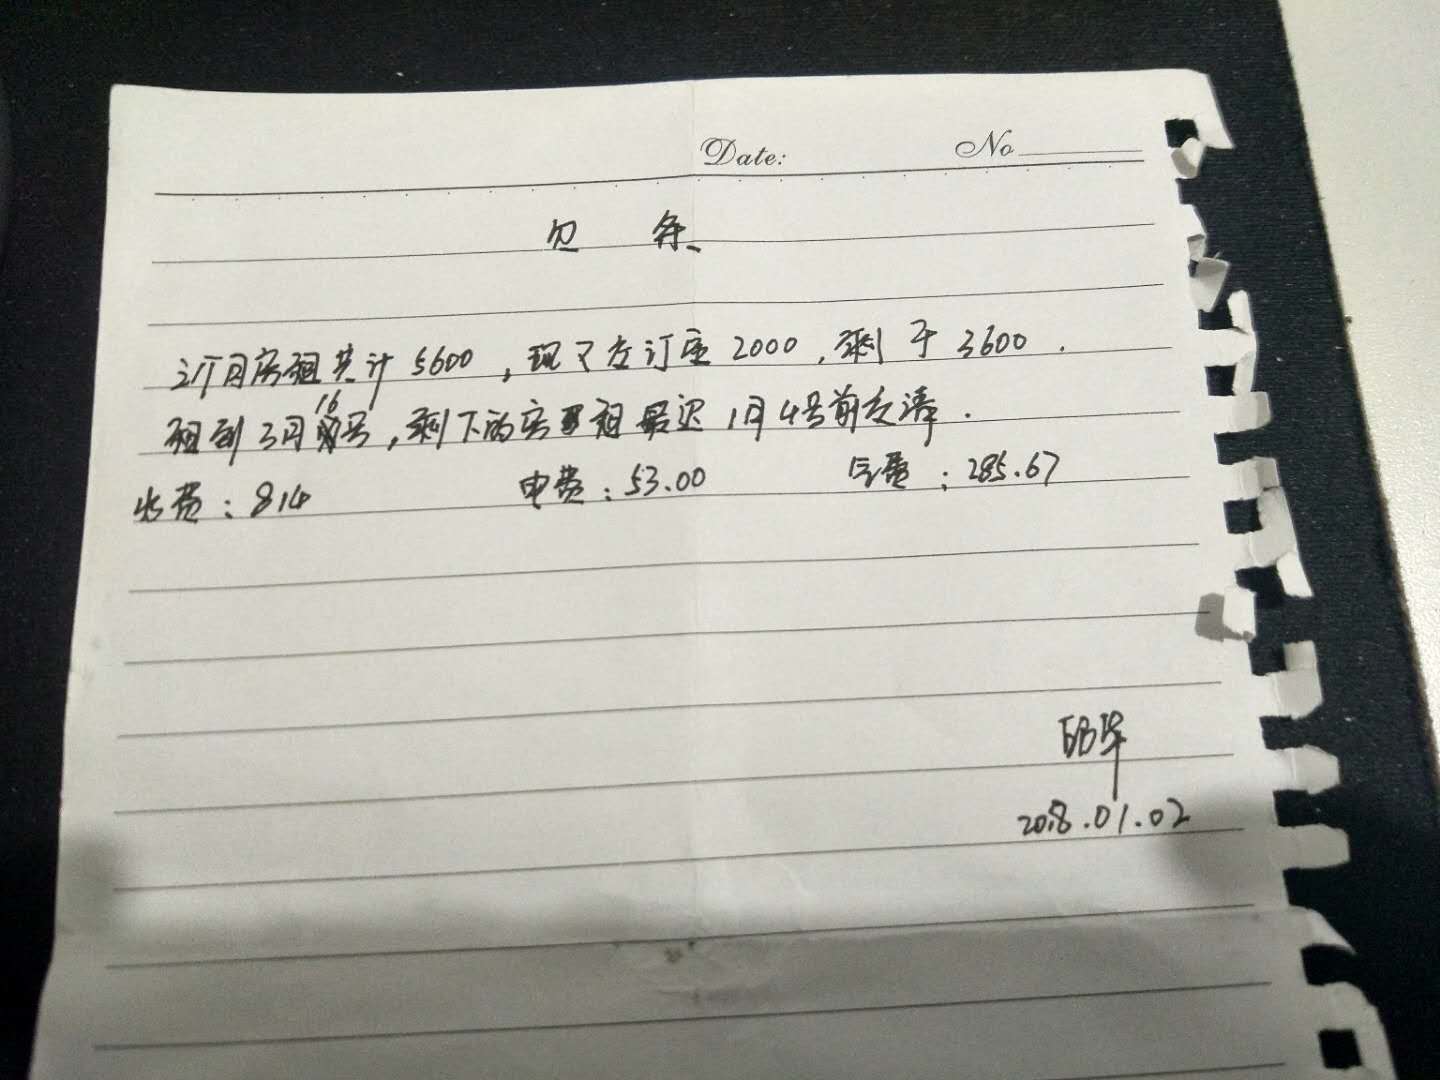 Date: No
欠条
2个月房租共计5600,现下左订金2000,剩于3600.
租到3月16号,剩下的房租最迟1月4号前支清.
水费:814 电费:53.00 气费:285.67
2018.01.02